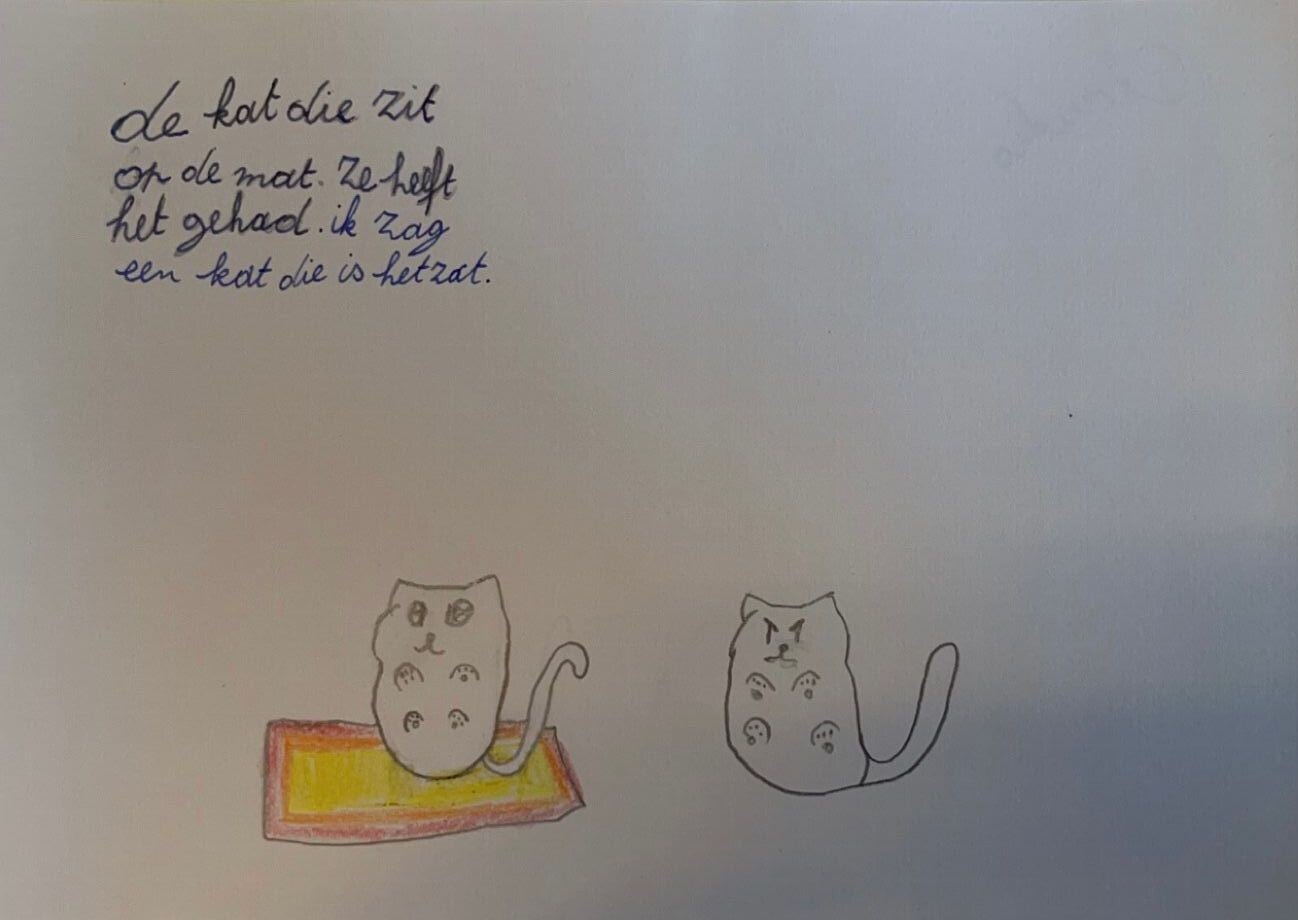 de kat die zit
op de mat. Ze heeft
het gehad. ik zag
een kat die is het zat.